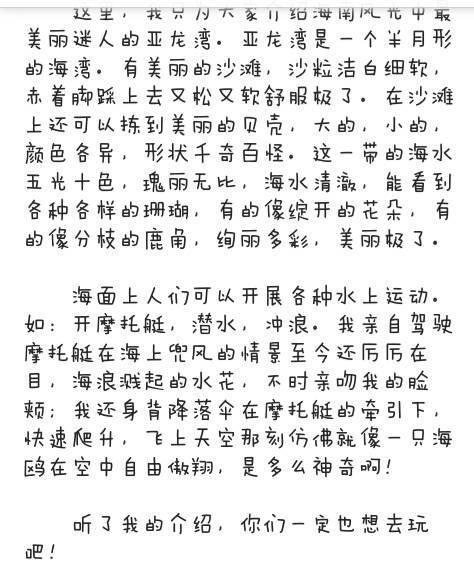 这里，我只为大家介绍海南风光中最
美丽迷人的亚龙湾。亚龙湾是一个半月形
的海湾。有美丽的沙滩，沙粒洁白细软，
赤着脚踩上去又松又软舒服极了。在沙滩
上还可以拣到美丽的贝壳，大的，小的，
颜色各异，形状千奇百怪。这一带的海水
五光十色，瑰丽无比，海水清澈，能看到
各种各样的珊瑚，有的像绽开的花朵，有
的像分枝的鹿角，绚丽多彩，美丽极了。
海面上人们可以开展各种水上运动。
如：开摩托艇，潜水，冲浪。我亲自驾驶
摩托艇在海上兜风的情景至今还历历在
目，海浪溅起的水花，不时亲吻我的脸
颊；我还身背降落伞在摩托艇的牵引下，
快速爬升，飞上天空那刻仿佛就像一只海
鸥在空中自由傲翔，是多么神奇啊！
听了我的介绍，你们一定也想去玩
吧！